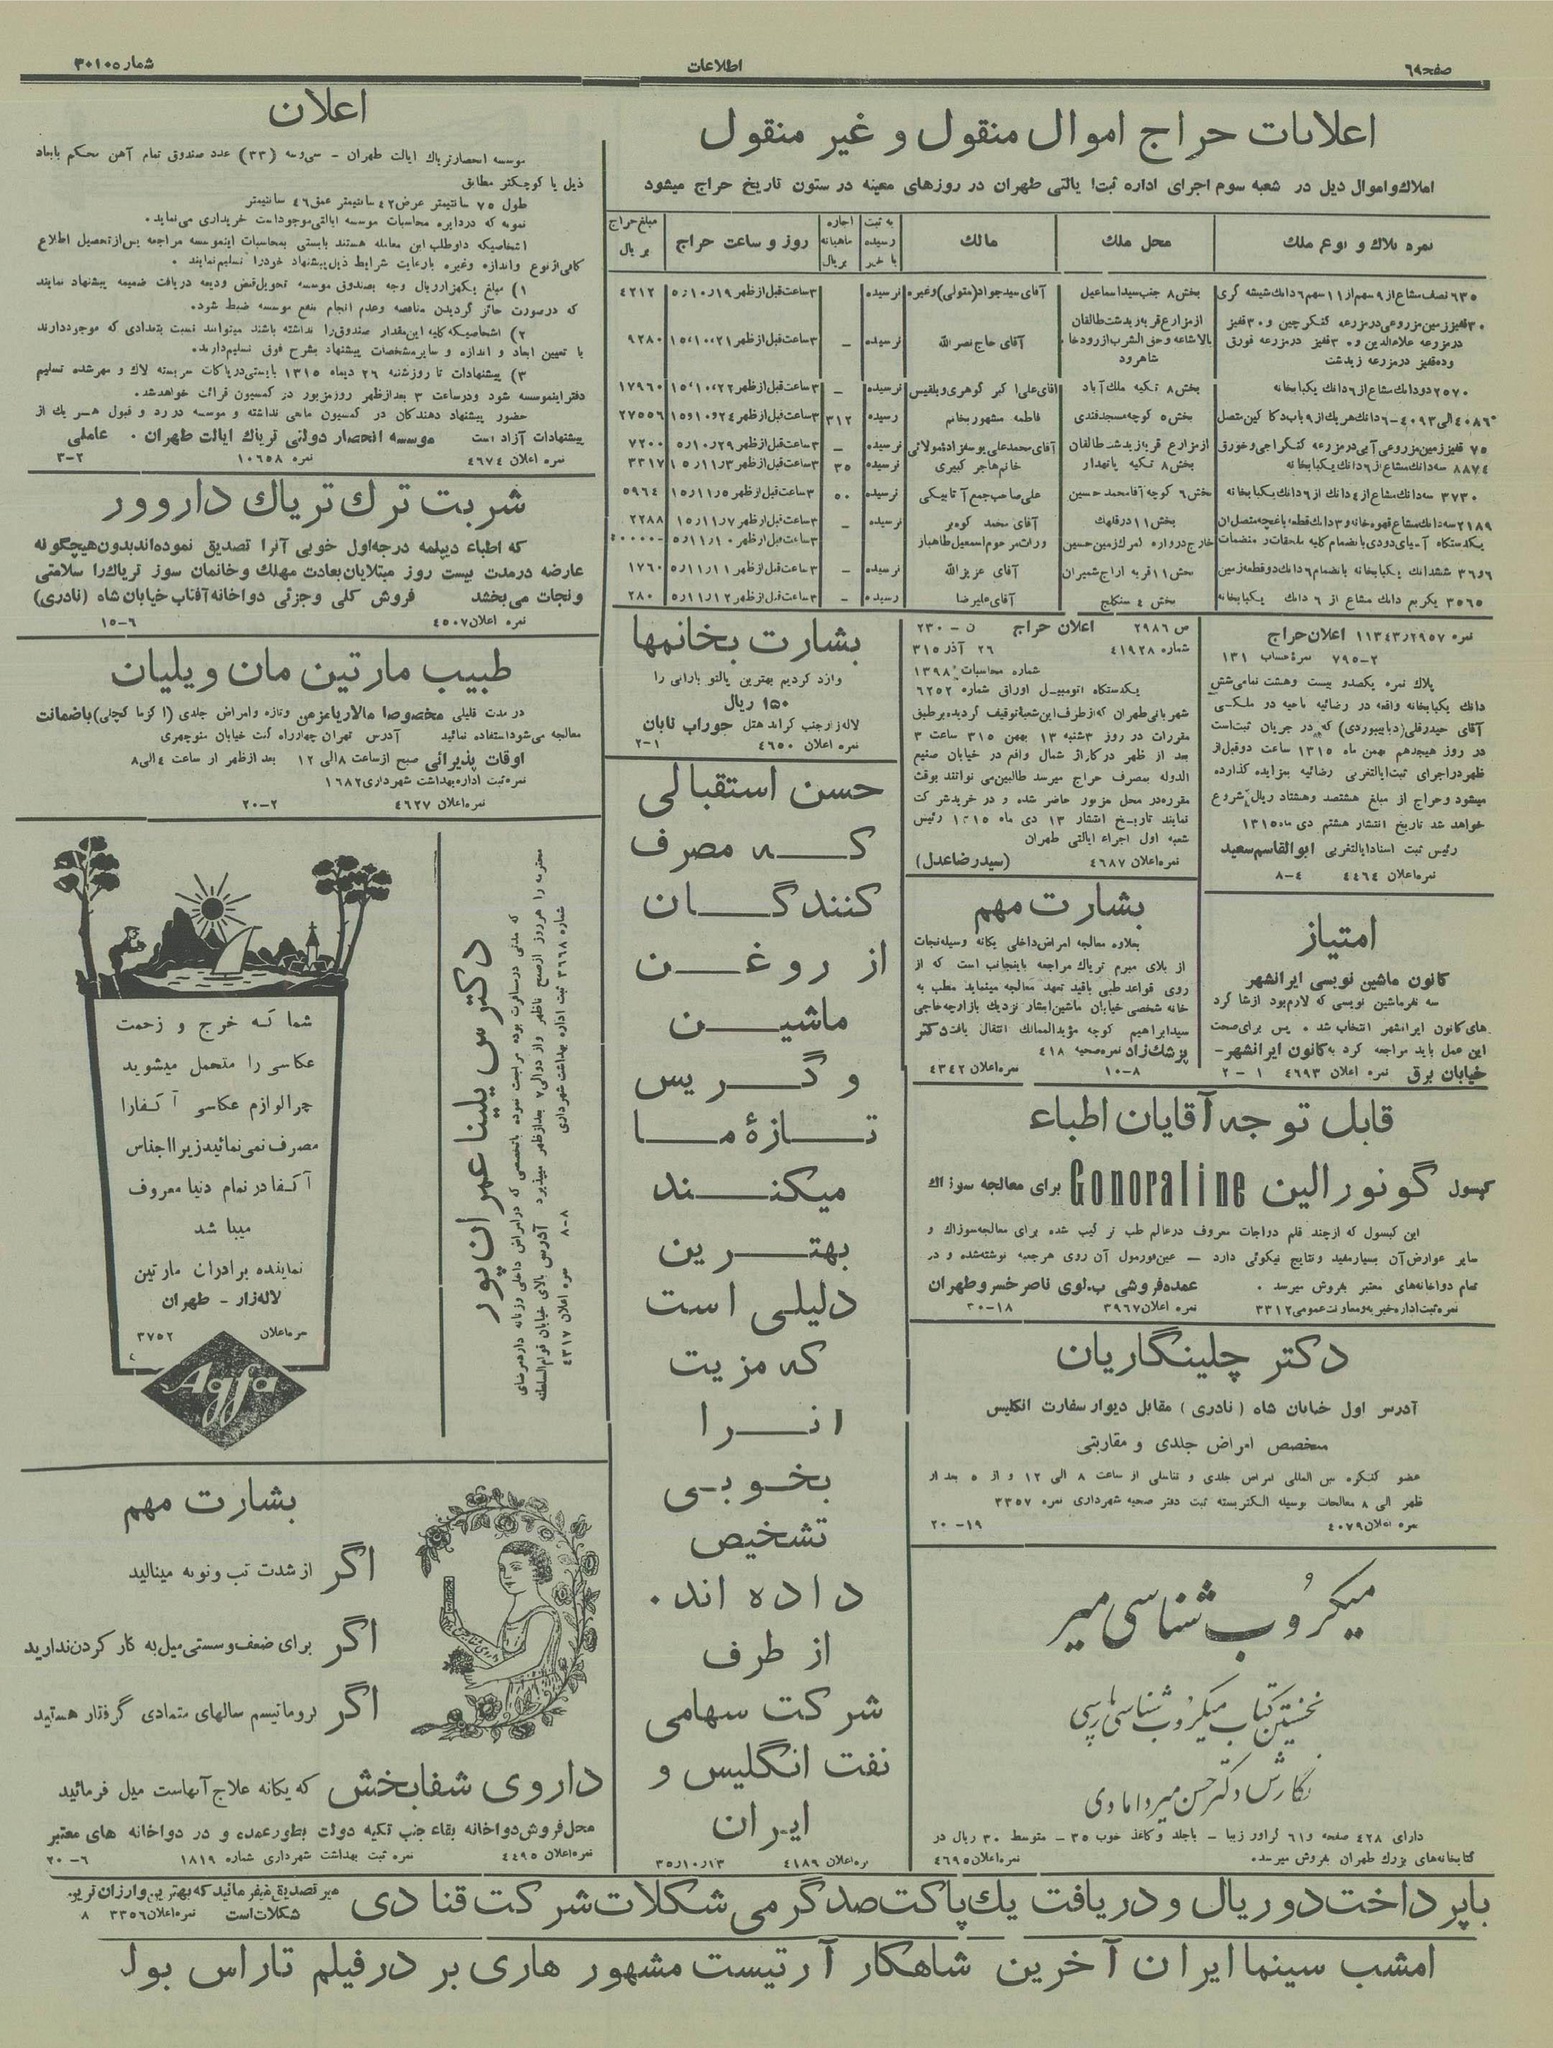 صفحه ۶۹
اطلاعات
شماره ۳۰۱۰
اعلانات حراج اموال منقول و غیر منقول
املاك و اموال ذیل در شعبه سوم اجرای اداره ثبت ایالتی طهران در روزهای معینه در ستون تاریخ حراج میشود
نمره پلاك و نوع ملك | محل ملك | مالك | به ثبت رسیده یا خیر | اجاره ماهیانه بریال | روز و ساعت حراج | مبلغ حراج بریال
۶۳۵ نصف مشاع از ۹ سهم از ۱۱ سهم ۶ دانك شیشه گری | بخش ۸ جنب سید اسماعیل | آقای سید جواد (متولی) وغیره | نرسیده | ۳ ساعت قبل از ظهر ۵٫۱۰٫۱۹ | ۴۲۱۲
۳۰ قفیز زمین مزروعی در مزرعه کنگرچین و ۳۰ قفیز
در مزرعه علاءالدین و ۳۰ قفیز در مزرعه فورق
وده قفیز در مزرعه زیدشت | از مزارع قریه زیدشت طالقان
بالاشاعه و حق الشرب از رودخانه
شاهرود | آقای حاج نصرالله | نرسیده | – | ۳ ساعت قبل از ظهر ۱۵٫۱۰٫۲۱ | ۹۲۸۰
۲۵۷۰ دو دانك مشاع از ۶ دانك یکبابخانه | بخش ۸ تکیه ملك آباد | آقای علی اکبر گوهری و بلقیس | نرسیده | – | ۳ ساعت قبل از ظهر ۱۵٫۱۰٫۲۲ | ۱۷۹۶۰
۴۰۸۶ الی ۴۰۹۳–۶ دانك هریك از ۹ باب دکاکین متصل | بخش ۵ کوچه مسجد قندی | فاطمه مشهور بخانم | رسیده | ۳۱۲ | ۳ ساعت قبل از ظهر ۲۴و۱۰و۱۵ | ۲۷۵۵۶
۷۵ قفیز زمین مزروعی آبی در مزرعه کنگراجی و خورق | از مزارع قریه زیدشت طالقان | آقای محمدعلی یوسفزاد شمولائی | نرسیده | – | ۳ ساعت قبل از ظهر ۵٫۱۰٫۲۹ | ۷۲۰۰
۸۸۷۴ سه دانك مشاع از ۶ دانك یکبابخانه | بخش ۸ تکیه پاتهدار | خانم هاجر کبیری | نرسیده | ۳۵ | ۳ ساعت قبل از ظهر ۱۵٫۱۱٫۳ | ۳۳۱۷
۳۷۳۰ سه دانك مشاع از ۴ دانك از ۶ دانك یکبابخانه | بخش ۶ کوچه آقا محمد حسین | علی صاحب جمع آتابیکی | نرسیده | ۵۰ | ۳ ساعت قبل از ظهر ۱۵٫۱۱٫۵ | ۵۹۶۴
۲۱۸۹ سه دانك مشاع قهوه خانه و ۳ دانك قطعه باغچه متصل بآن | بخش ۱۱ در قلهك | آقای محمد گوهر | نرسیده | – | ۳ ساعت قبل از ظهر ۱۵٫۱۱٫۷ | ۲۲۸۸
یکدستگاه آسیای دودی بانضمام کلیه ملحقات و منضمات | خارج دروازه گمرك زمین حسین | وراث مرحوم اسمعیل طاهباز | ۳ ساعت قبل از ظهر ۵٫۱۱٫۱۰ | ۴۰۰۰۰۰
۶و۳۶ ششدانك یکبابخانه بانضمام ۶ دانك دو قطعه زمین | بخش ۱۱ قریه اراج شمیران | آقای عزیزالله | نرسیده | – | ۳ ساعت قبل از ظهر ۵٫۱۱٫۱۱ | ۱۷۶۰
۳۵۶۵ یکربع دانك مشاع از ۶ دانك یکبابخانه | بخش ۴ سنگلج | آقای علیرضا | رسیده | – | ۳ ساعت قبل از ظهر ۵٫۱۱٫۱۲ | ۲۸۰
نمره ۱۱۳۴۳٫۲۹۵۷ اعلان حراج
۷۹۵–۲ نمره حساب ۱۳۱
پلاك نمره یکصدو بیست وهشت تمامی شش
دانك یکبابخانه واقعه در رضائیه ناحیه در ملکی
آقای حیدرقلی (دبابیبوردی) که در جریان ثبت است
در روز هیجدهم بهمن ماه ۱۳۱۵ ساعت دو قبل از
ظهر در اجرای ثبت ایالتغربی رضائیه بمزایده گذارده
میشود و حراج از مبلغ هشتصد وهشتاد ریال شروع
خواهد شد تاریخ انتشار هشتم دی ماه ۱۳۱۵
رئیس ثبت اسناد ایالتغربی ابوالقاسم سعید
نمره اعلان ۴۴۶۴ ۴–۸
امتیاز
کانون ماشین نویسی ایرانشهر
سه نفر ماشین نویسی که لازم بود از شاگرد
های کانون ایرانشهر انتخاب شد . پس برای صحت
این عمل باید مراجعه کرد به کانون ایرانشهر–
خیابان برق نمره اعلان ۴۶۹۳ ۱–۲
ص ۲۹۸۶ اعلان حراج ن – ۲۳۰
شماره ۴۱۹۲۸ ۲۶ آذر ۳۱۵
شماره محاسبات ۱۳۹۸
یکدستگاه اتومبیل اوراق شماره ۶۲۵۲
شهربانی طهران که از طرف این شعبه توقیف گردیده برطبق
مقررات در روز ۳شنبه ۱۳ بهمن ۳۱۵ ساعت ۳
بعد از ظهر در گاراژ شمال واقع در خیابان صنیع
الدوله بمصرف حراج میرسد طالبین می توانند بوقت
مقرره در محل مزبور حاضر شده و در خرید شرکت
نمایند تاریخ انتشار ۱۳ دی ماه ۱۳۱۵ رئیس
شعبه اول اجراء ایالتی طهران
نمره اعلان ۴۶۸۷ (سیدرضاعدل)
بشارت مهم
بعلاوه معالجه امراض داخلی یگانه وسیله نجات
از بلای مبرم تریاك مراجعه باینجانب است که از
روی قواعد طبی باقید تعهد معالجه مینماید مطب به
خانه شخصی خیابان ماشین ایستار نزدیك بازارچه حاجی
سید ابراهیم کوچه مؤید الممالك انتقال یافت دکتر
پزشك زاد نمره صحیه ۴۱۸
۸–۱۰ نمره اعلان ۴۳۴۲
قابل توجه آقایان اطباء
کپسول گونورالین Gonoraline برای معالجه سوزاك
این کپسول که از چند قلم دواجات معروف در عالم طب ترکیب شده برای معالجه سوزاك و
سایر عوارض آن بسیار مفید و نتایج نیکوئی دارد – عین فورمول آن روی هر جعبه نوشته شده و در
تمام دواخانه های معتبر بفروش میرسد . عمده فروشی ب.لوی ناصرخسرو طهران
نمره ثبت اداره خیریه و معاونت عمومی ۳۳۱۲ نمره اعلان ۳۹۶۷ ۱۸–۳۰
دکتر چلینگاریان
آدرس اول خیابان شاه (نادری) مقابل دیوار سفارت انگلیس
متخصص امراض جلدی و مقاربتی
عضو کنگره بین المللی امراض جلدی و تناسلی از ساعت ۸ الی ۱۲ و از ۵ بعد از
ظهر الی ۸ معالجات بوسیله الکتریسته ثبت دفتر صحیه شهرداری نمره ۳۳۵۷
نمره اعلان ۴۰۷۹ ۱۹–۲۰
میکروب شناسی میر
نخستین کتاب میکروب شناسی پارسی
نگارش دکتر حسن میردامادی
دارای ۴۲۸ صفحه و ۶۱ گراور زیبا – باجلد و کاغذ خوب ۳۵ – متوسط ۳۰ ریال در
کتابخانه های بزرك طهران بفروش میرسد. نمره اعلان ۴۶۹۵
بشارت بخانمها
وارد کردیم بهترین پالتو بارانی را
۱۵۰ ریال
لاله زار جنب گراند هتل جوراب تابان
نمره اعلان ۴۶۵۰ ۱–۲
حسن استقبالی
که مصرف
کنندگان
از روغن
ماشین
و گریس
تازهٔ ما
میکنند
بهترین
دلیلی است
که مزیت
انرا
بخوبی
تشخیص
داده اند.
از طرف
شرکت سهامی
نفت انگلیس و
ایران
نمره اعلان ۴۱۸۹ ۳۵٫۱۰٫۱۳
اعلان
موسسه انحصار تریاك ایالت طهران – سی وسه (۳۳) عدد صندوق تمام آهن محکم بابعاد
ذیل یا کوچکتر مطابق
طول ۷۵ سانتیمتر عرض ۴۲ سانتیمتر عمق ۴۶ سانتیمتر
نمونه که در دایره محاسبات موسسه ایالتی موجود است خریداری می نماید.
اشخاصیکه داوطلب این معامله هستند بایستی بمحاسبات اینموسسه مراجعه پس از تحصیل اطلاع
کافی از نوع و اندازه وغیره با رعایت شرایط ذیل پیشنهاد خود را تسلیم نمایند .
۱) مبلغ یکهزار ریال وجه بصندوق موسسه تحویل قبض ودیعه دریافت ضمیمه پیشنهاد نمایند
که درصورت حائز گردیدن مناقصه وعدم انجام بنفع موسسه ضبط شود.
۲) اشخاصیکه کلیه این مقدار صندوق را نداشته باشند میتوانند نسبت بتعدادی که موجود دارند
با تعیین ابعاد و اندازه و سایر مشخصات پیشنهاد بشرح فوق تسلیم دارند.
۳) پیشنهادات تا روز شنبه ۲۶ دیماه ۱۳۱۵ بایستی در پاکات سربسته لاك و مهر شده تسلیم
دفتر اینموسسه شود ودر ساعت ۳ بعد از ظهر روز مزبور در کمسیون قرائت خواهد شد.
حضور پیشنهاد دهندکان در کمسیون مانعی نداشته و موسسه در رد و قبول هر یك از
پیشنهادات آزاد است موسسه انحصار دولتی تریاك ایالت طهران . عاملی
نمره اعلان ۴۶۷۴ نمره ۱۰۶۵۸ ۲–۳
شربت ترك تریاك داروور
که اطباء دیپلمه درجه اول خوبی آنرا تصدیق نموده اند بدون هیچگونه
عارضه در مدت بیست روز مبتلایان بعادت مهلك و خانمان سوز تریاك را سلامتی
و نجات می بخشد فروش کلی و جزئی دواخانه آفتاب خیابان شاه (نادری)
نمره اعلان ۴۵۰۷ ۶–۱۵
طبیب مارتین مان ویلیان
در مدت قلیلی مخصوصا مالاریا مزمن وتازه و امراض جلدی (اگزما کچلی) باضمانت
معالجه می شود استفاده نمائید آدرس تهران چهارراه کنت خیابان منوچهری
اوقات پذیرائی صبح از ساعت ۸ الی ۱۲ بعد از ظهر از ساعت ۴ الی ۸
نمره ثبت اداره بهداشت شهرداری ۱۶۸۲
نمره اعلان ۴۶۲۷ ۲–۲۰
دکترس یلینا عمران پور
که مدتی در مسافرت بوده مراجعت نموده باتخصصی که در امراض داخلی و زنانه دارد مرضای
محترمه را هر روز از صبح تا ظهر و از دو الی ۷ بعد از ظهر میپذیرد آدرس بالای خیابان قوام السلطنه
شماره ۳۹۶۸ ثبت اداره بهداشت شهرداری ۸–۸ نمره اعلان ۴۳۱۷
شما که خرج و زحمت
عکاسی را متحمل میشوید
چرا لوازم عکاسی آکفارا
مصرف نمی نمائید زیرا اجناس
آکفا در تمام دنیا معروف
میباشد
نماینده برادران مارتین
لاله زار – طهران
نمره اعلان ۳۷۵۲
Agfa
بشارت مهم
اگر از شدت تب و نوبه مینالید
اگر برای ضعف و سستی میل به کار کردن ندارید
اگر برماتیسم سالهای متمادی گرفتار هستید
داروی شفابخش که یگانه علاج آنهاست میل فرمائید
محل فروش دواخانه بقاء جنب تکیه دولت بطور عمده و در دواخانه های معتبر
نمره اعلان ۴۴۹۵ نمره ثبت بهداشت شهرداری شماره ۱۸۱۹ ۶–۲۰
باپرداخت دو ریال و دریافت یك پاکت صد گرمی شکلات شرکت قنادی
تصدیق میفرمائید که بهترین و ارزان ترین
شکلات است نمره اعلان ۳۳۵۶ ۸
امشب سینما ایران آخرین شاهکار آرتیست مشهور هاری بر در فیلم تاراس بولبا